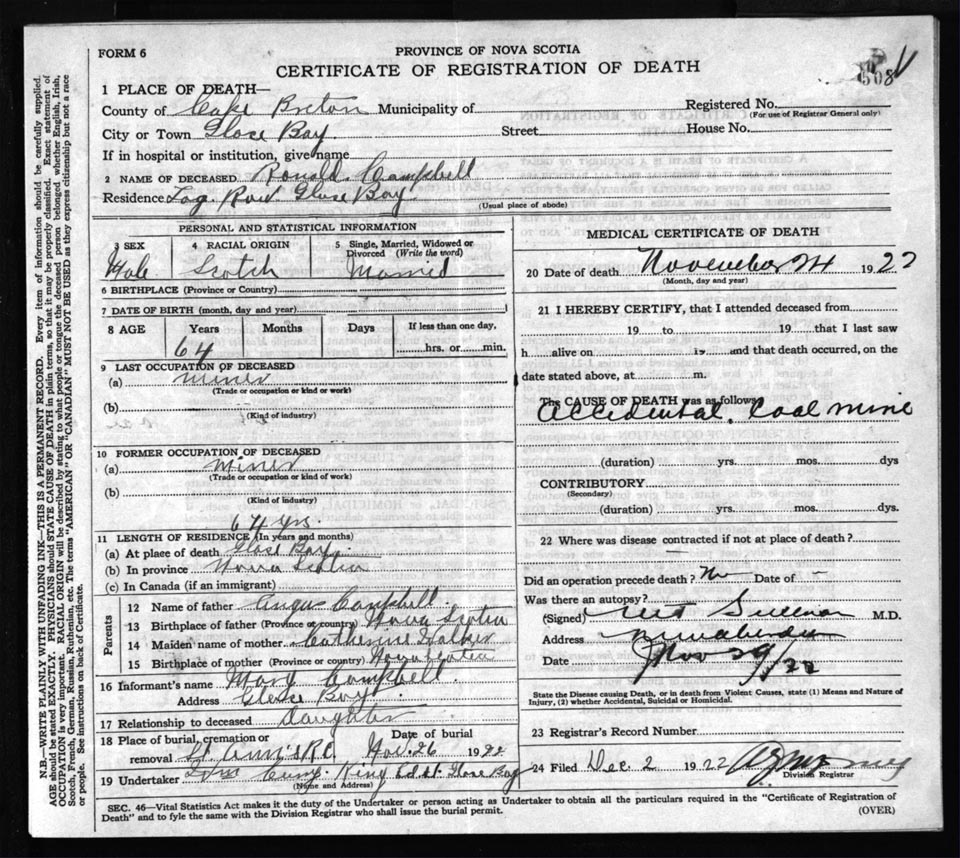 FORM 6
PROVINCE OF NOVA SCOTIA
CERTIFICATE OF REGISTRATION OF DEATH
508
1 PLACE OF DEATH—
County of Cape Breton Municipality of
Registered No.
(For use of Registrar General only)
City or Town Glace Bay Street
House No.
If in hospital or institution, give name
2 NAME OF DECEASED Ronald Campbell
Residence Log Row Glace Bay
(Usual place of abode)
PERSONAL AND STATISTICAL INFORMATION
3 SEX
4 RACIAL ORIGIN
5 Single, Married, Widowed or Divorced (Write the word)
Male Scotch Married
6 BIRTHPLACE (Province or Country)
7 DATE OF BIRTH (month, day and year)
8 AGE Years Months Days If less than one day,
64
hrs. or min.
9 LAST OCCUPATION OF DECEASED
(a) Miner
(Trade or occupation or kind of work)
(b)
(Kind of industry)
10 FORMER OCCUPATION OF DECEASED
(a) Miner
(Trade or occupation or kind of work)
(b)
(Kind of industry)
64 yrs.
11 LENGTH OF RESIDENCE (In years and months)
(a) At place of death Glace Bay
(b) In province Nova Scotia
(c) In Canada (if an immigrant)
Parents
12 Name of father Angus Campbell
13 Birthplace of father (Province or country) Nova Scotia
14 Maiden name of mother Catherine Walker
15 Birthplace of mother (Province or country) Nova Scotia
16 Informant's name Mary Campbell
Address Glace Bay
17 Relationship to deceased Daughter
18 Place of burial, cremation or removal St. Ann's R.C.
Date of burial Nov. 26 1922
19 Undertaker King Ed. St. Glace Bay
(Name and Address)
MEDICAL CERTIFICATE OF DEATH
20 Date of death November 24 1922
(Month, day and year)
21 I HEREBY CERTIFY, that I attended deceased from
19 to 19 that I last saw
h alive on 19 and that death occurred, on the
date stated above, at m.
The CAUSE OF DEATH was as follows
Accidental. Coal Mine
(duration) yrs. mos. dys
CONTRIBUTORY
(Secondary)
(duration) yrs. mos. dys.
22 Where was disease contracted if not at place of death?
Did an operation precede death? No Date of –
Was there an autopsy?
(Signed) Sullivan M.D.
Address New Aberdeen
Date Nov 29/22
State the Disease causing Death, or in death from Violent Causes, state (1) Means and Nature of
Injury, (2) whether Accidental, Suicidal or Homicidal.
23 Registrar's Record Number
24 Filed Dec. 2 1922
Division Registrar
SEC. 46—Vital Statistics Act makes it the duty of the Undertaker or person acting as Undertaker to obtain all the particulars required in the "Certificate of Registration of
Death" and to fyle the same with the Division Registrar who shall issue the burial permit.
(OVER)
N.B.—WRITE PLAINLY WITH UNFADING INK—THIS IS A PERMANENT RECORD. Every item of information should be carefully supplied.
AGE should be stated EXACTLY. PHYSICIANS should STATE CAUSE OF DEATH in plain terms, so that it may be properly classified. Exact statement of
OCCUPATION is very important. RACIAL ORIGIN will be described by stating to what people or tongue the deceased person belonged whether English, Irish,
Scotch, French, German, Russian, Ruthenian, etc. The terms "AMERICAN" OR "CANADIAN" MUST NOT BE USED as they express citizenship but not a race
or people. See instructions on back of Certificate.